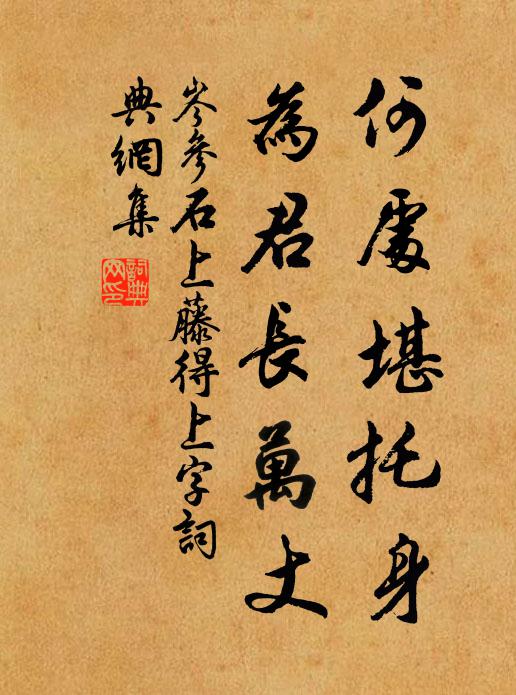 何處堪托身
為君長萬丈
岑參石上藤得上字詞
典網集
詞典
网印